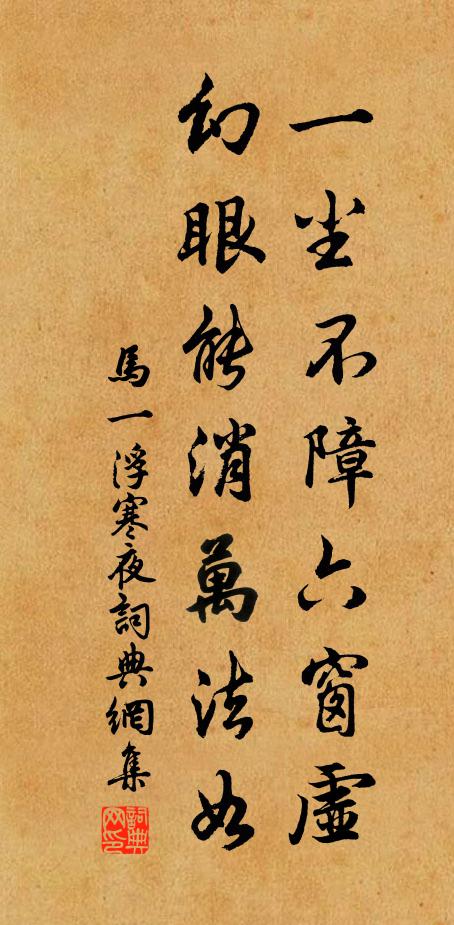 一尘不障六窗虛
幻眼能消萬法如
馬一浮寒夜詞典網集
詞典網印